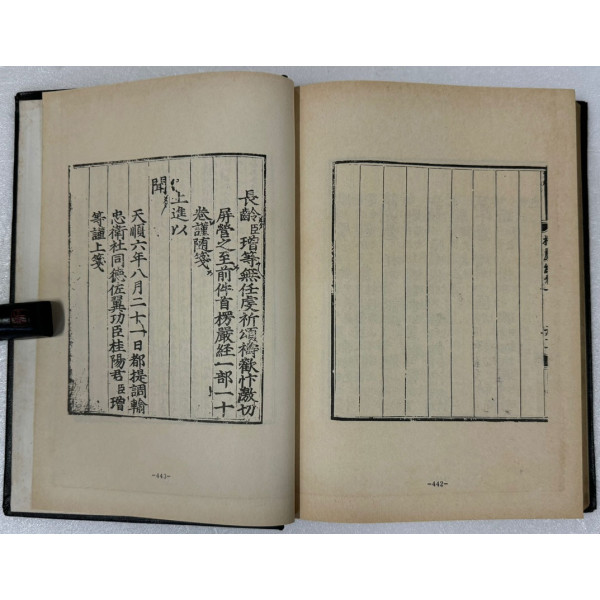 -442-
長齡臣璔等無任虔祈頌禱歡忭激切
屏營之至前件首楞嚴經一部一十
卷謹随箋
上進以
聞
天順六年八月二十一日都提調輸
忠衛社同德佐翼功臣桂陽君臣璔
等謹上箋
-443-